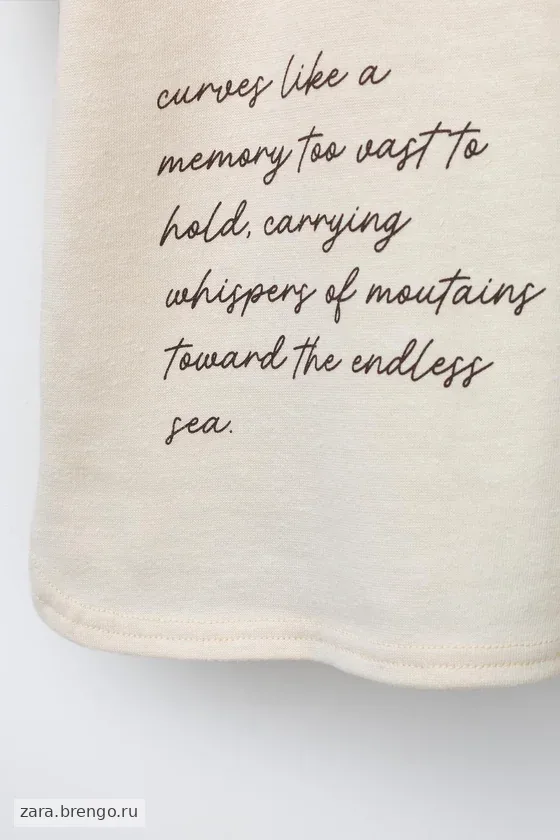 curves like a
memory too vast to
hold, carrying
whispers of moutains
toward the endless
sea.
zara.brengo.ru